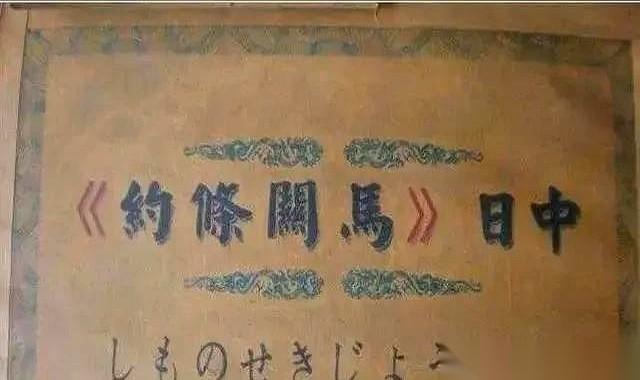 中日《馬關條約》
しものせきじょう